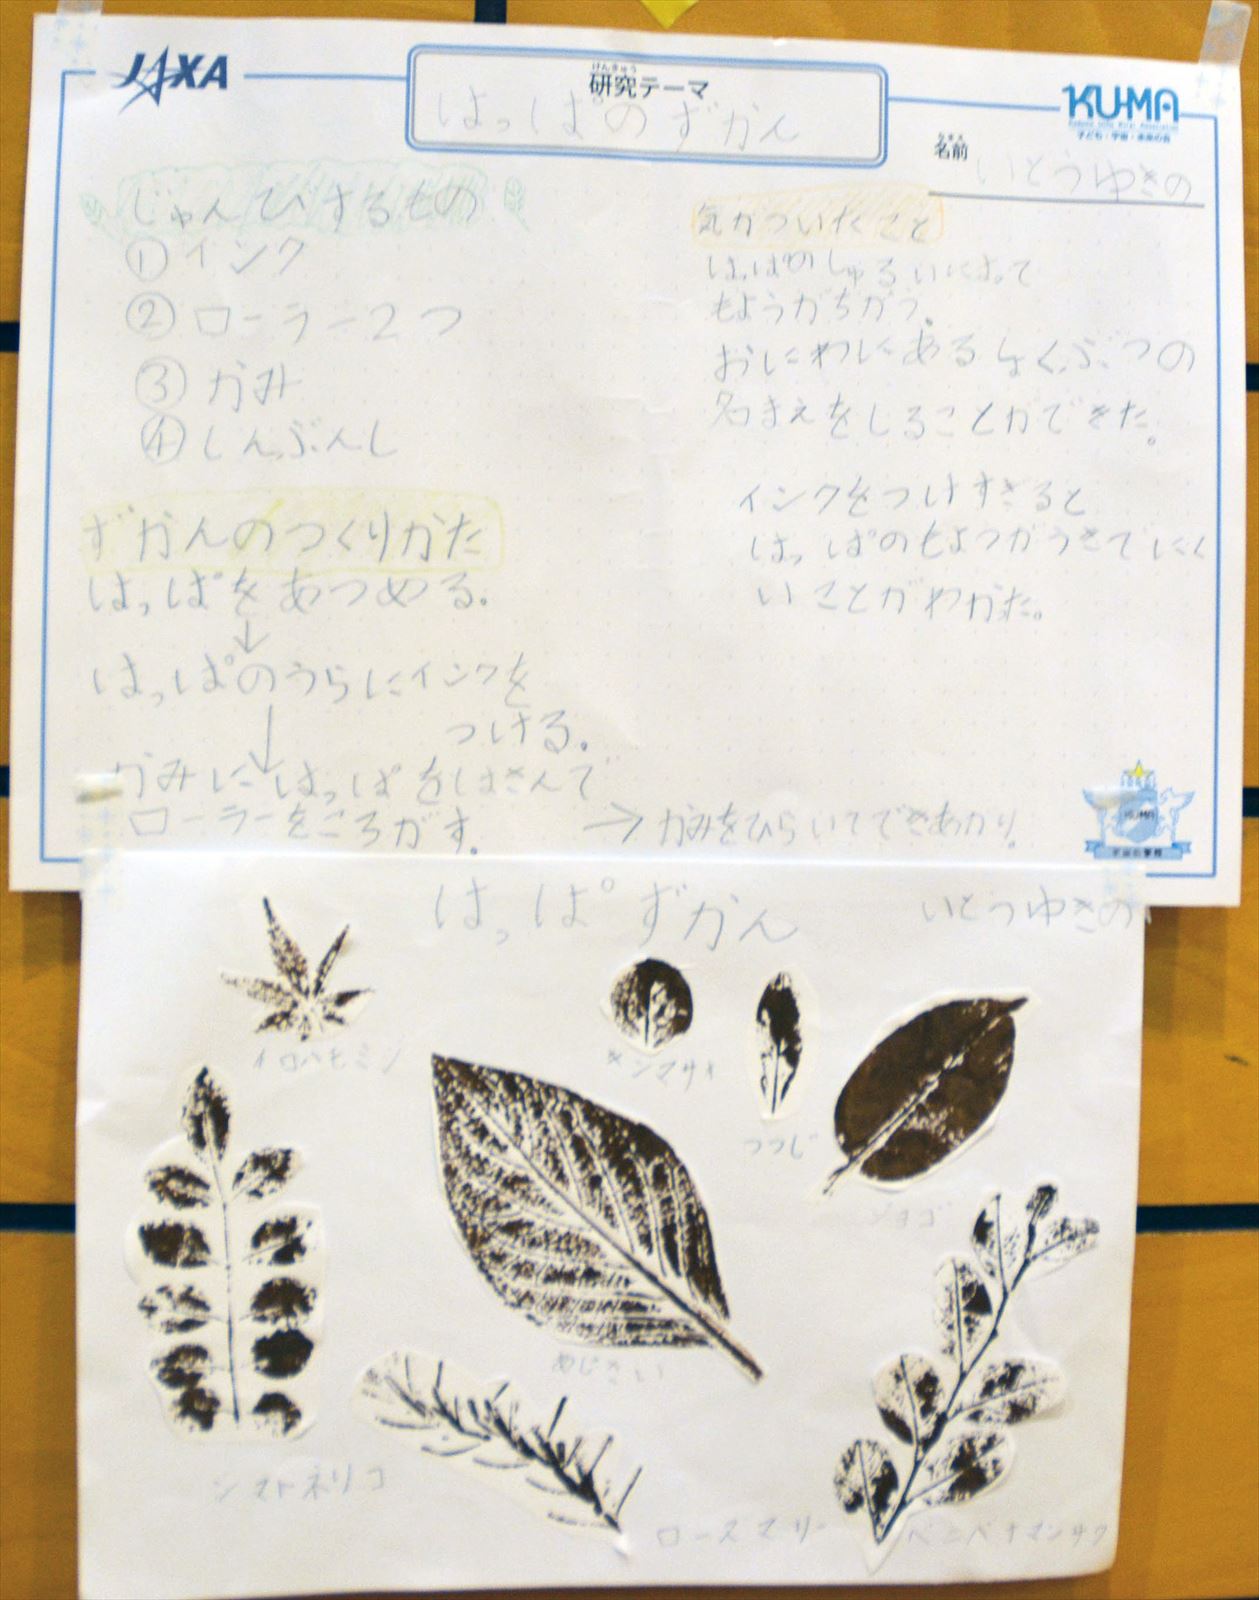 JAXA
けんきゅう
研究テーマ
はっぱのずかん
KU-MA
子ども・宇宙・未来の会
なまえ
名前
いとうゆきの
じゅんびするもの
①インク
②ローラー2つ
③かみ
④しんぶんし
ずかんのつくりかた
はっぱをあつめる。
↓
はっぱのうらにインクを
つける。
↓
かみにはっぱをはさんで
ローラーをころがす。
→かみをひらいてできあがり。
気がついたこと
はっぱのしゅるいによって
もようがちがう。
おにわにあるしょくぶつの
名まえをしることができた。
インクをつけすぎると
はっぱのもようがうきでにく
いことがわかった。
KUMA
宇宙の学校
はっぱずかん
いとうゆきの
イロハモミジ
キンマサキ
つつじ
あじさい
シマトネリコ
ローズマリー
ベニバナマンサク